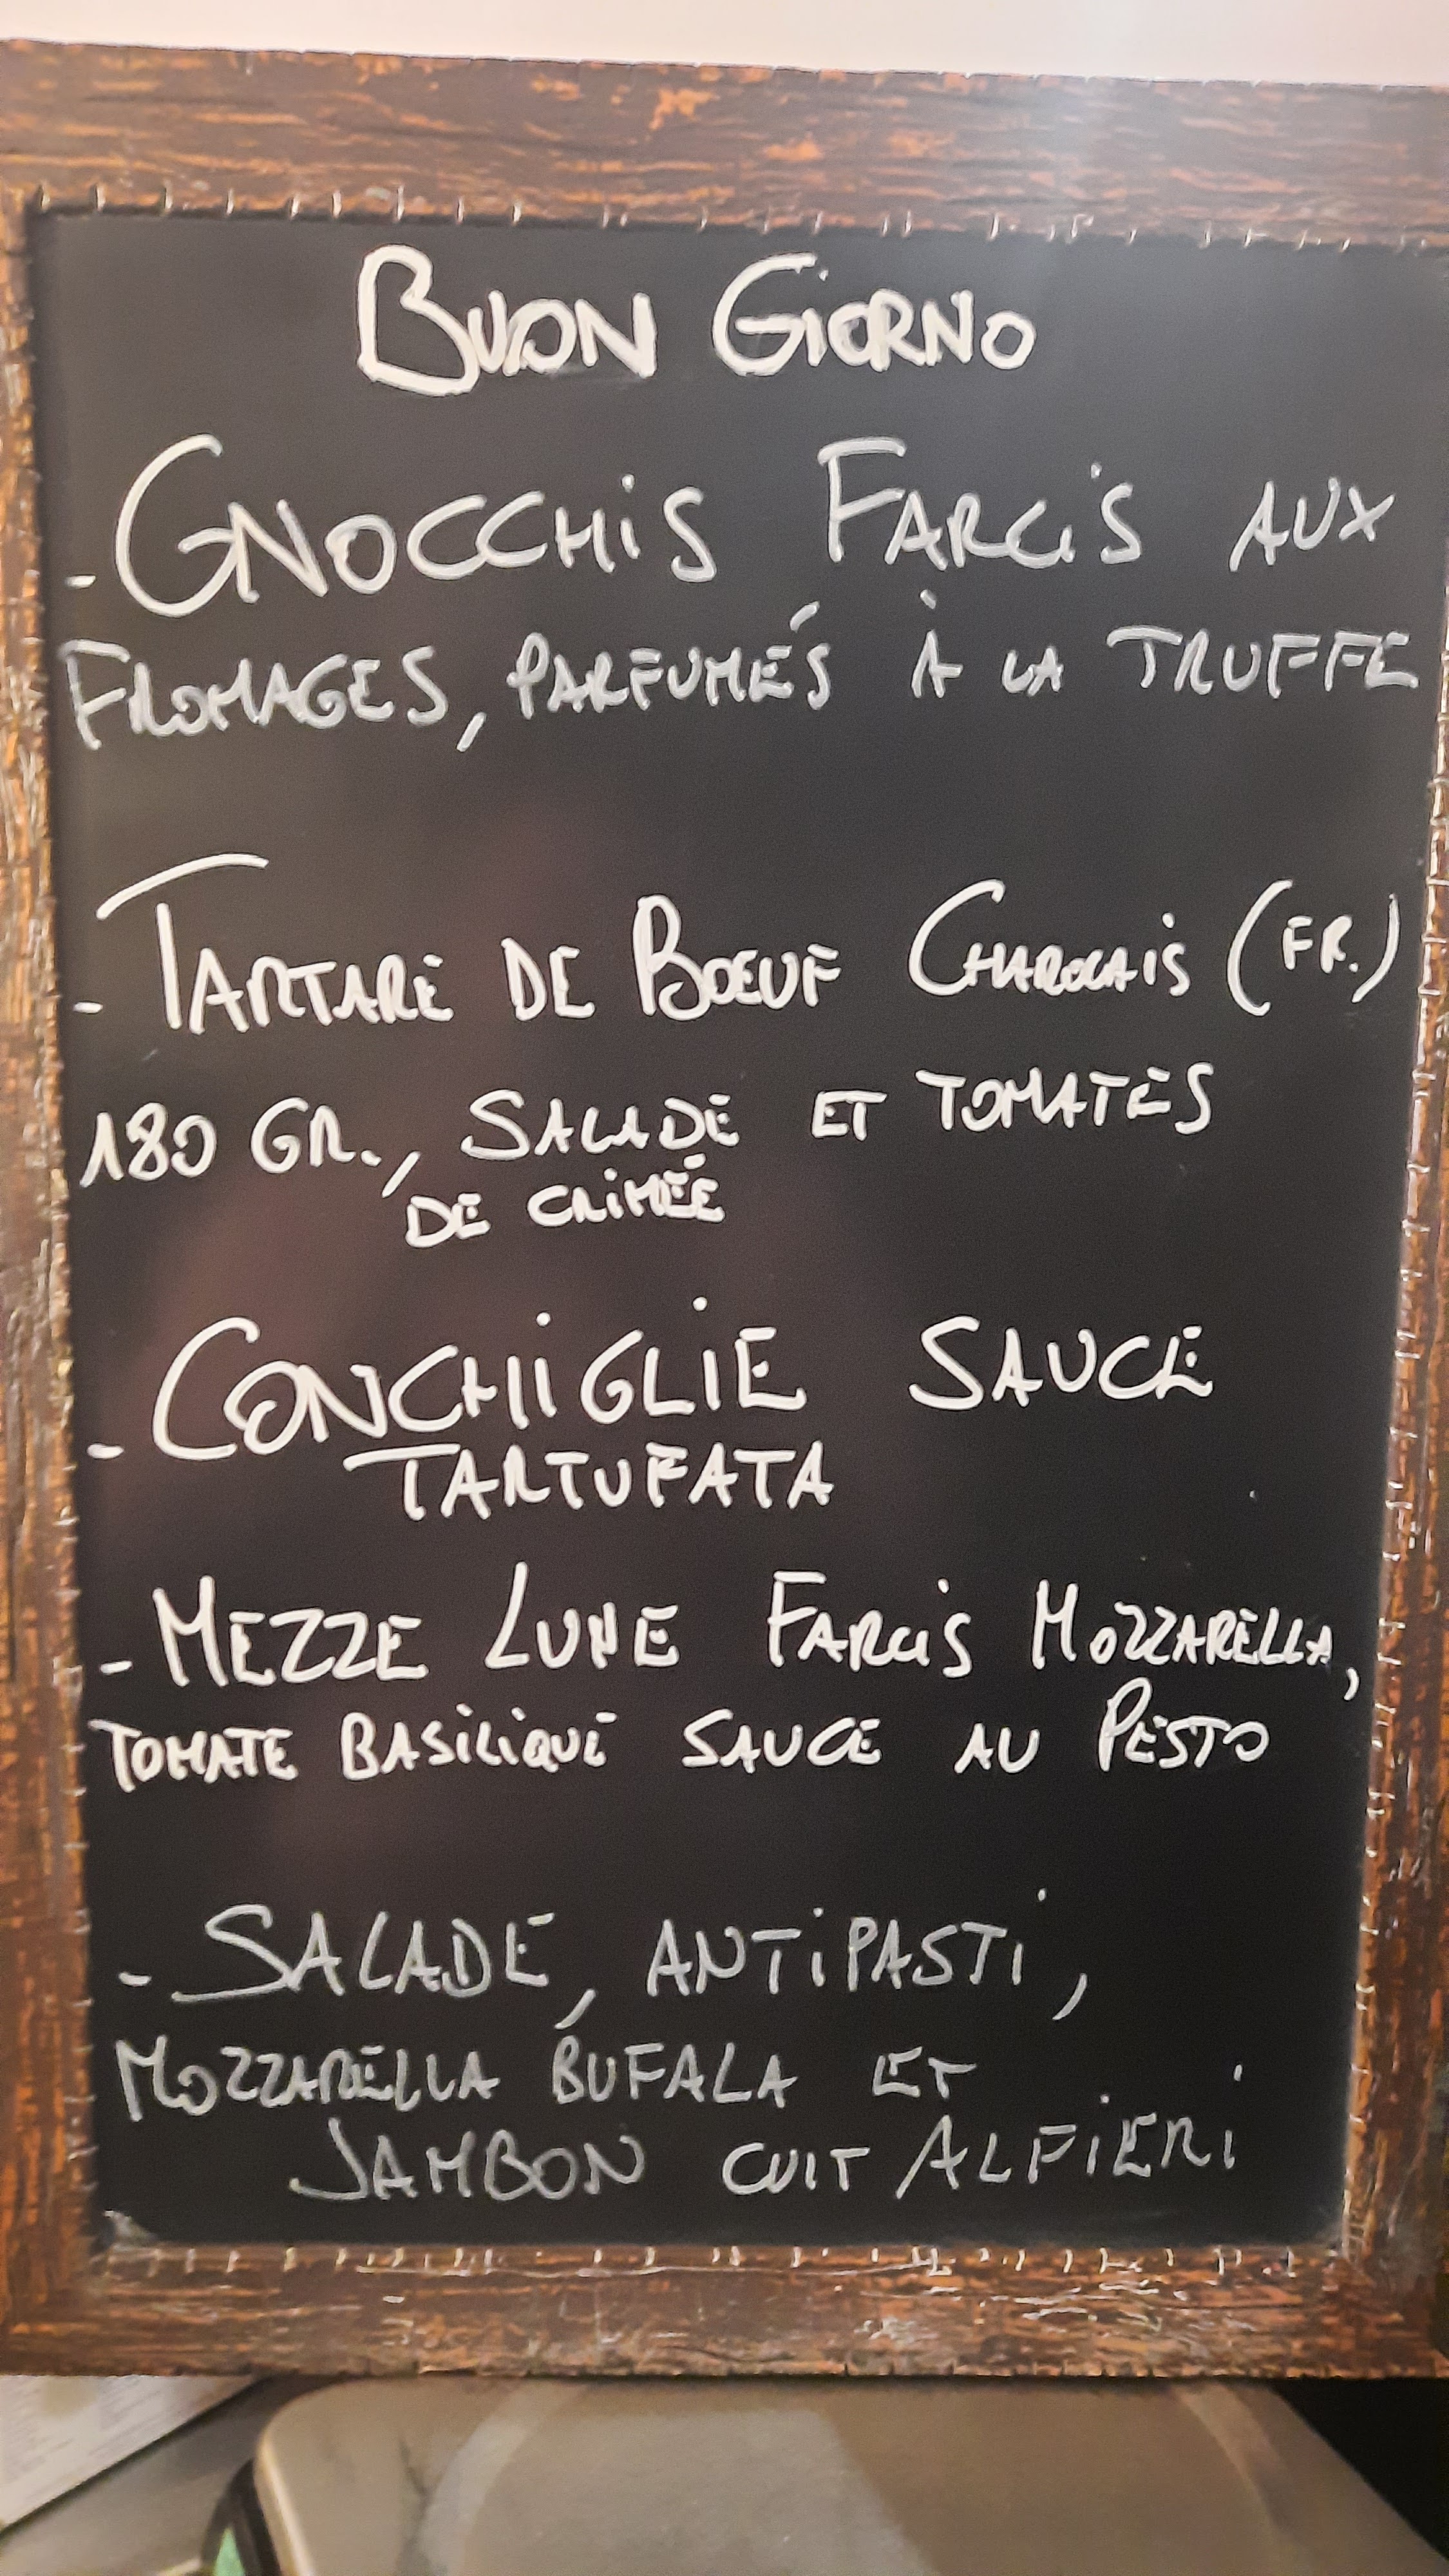 BUON GIORNO
- GNOCCHIS FARCIS AUX
FROMAGES, PARFUMÉS À LA TRUFFE
- TARTARE DE BOEUF CHAROLAIS (FR.)
180 GR., SALADE ET TOMATES
DE CRIMÉE
- CONCHIGLIE SAUCE
TARTUFATA
- MEZZE LUNE FARCIS MOZZARELLA,
TOMATE BASILIQUE SAUCE AU PESTO
- SALADE, ANTIPASTI,
MOZZARELLA BUFALA ET
JAMBON CUIT ALFIERI